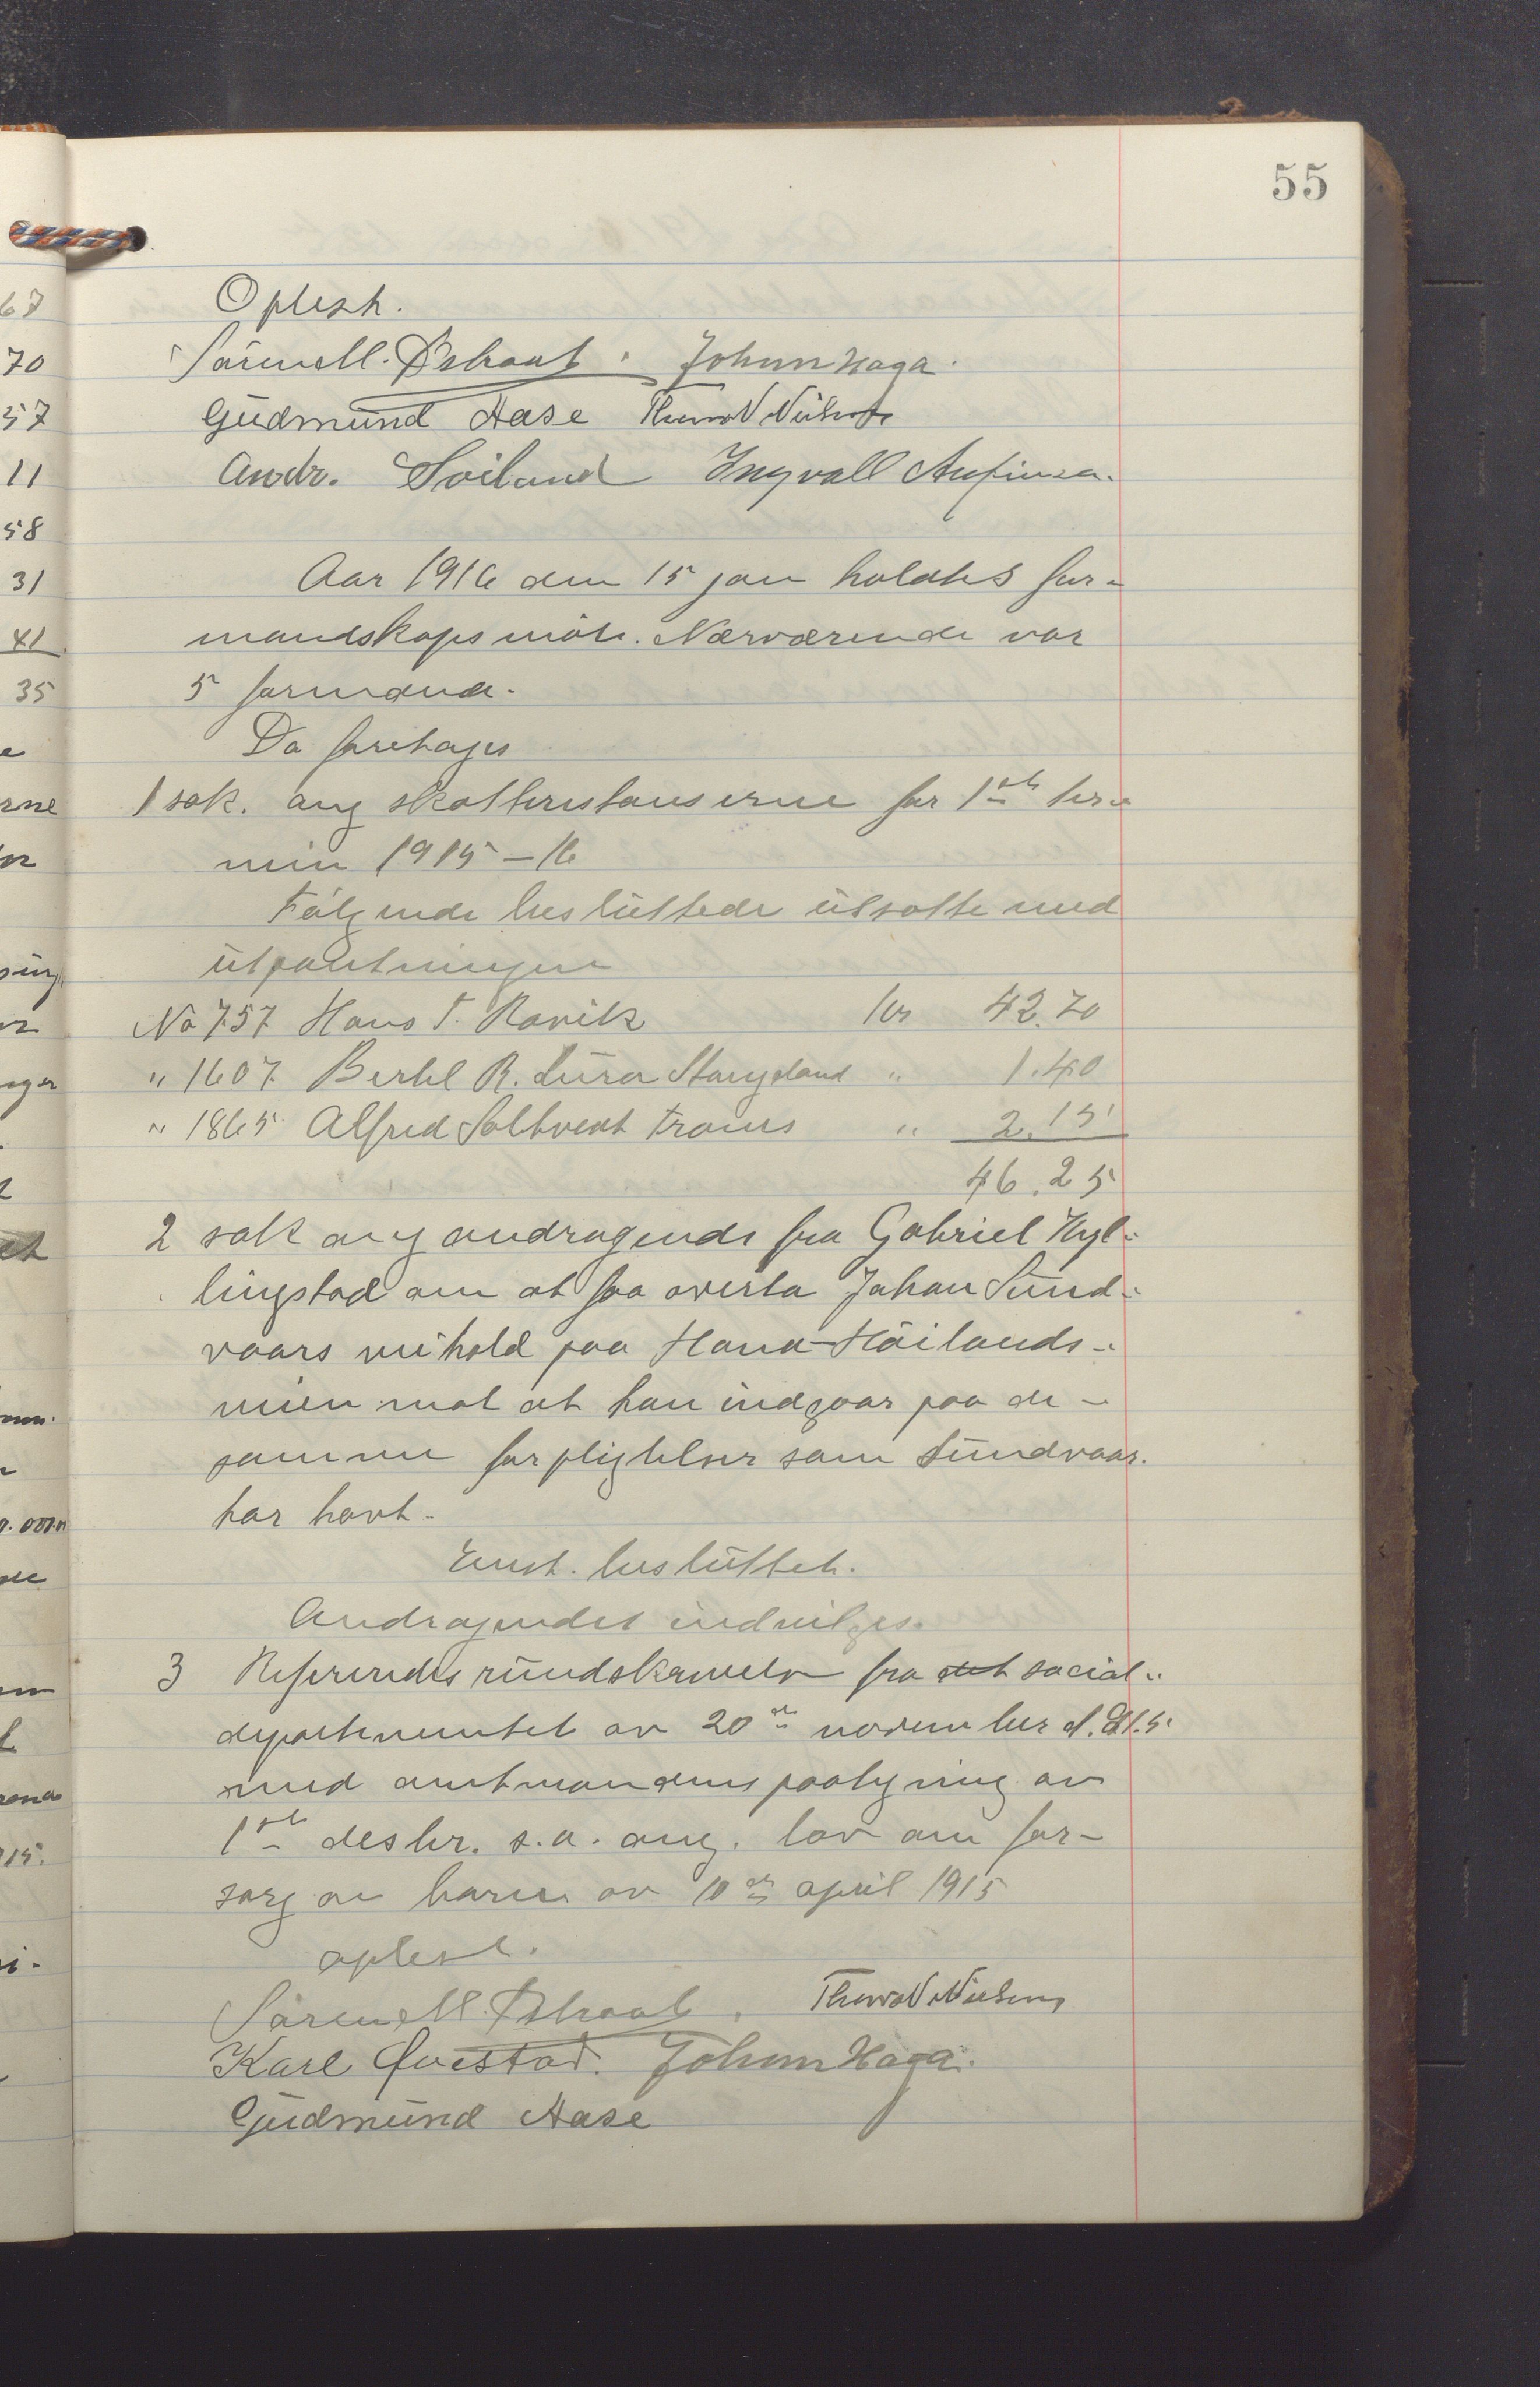 55
Oplest.
Søren M. Østraat. Johan Haga.
Gudmund Aase Thorvald Nielsen
Andr. Soiland Ingvall Aufinsen.
Aar 1916 den 15 jan holdtes for-
mandskapsmøte. Nærværende var
5 formænd.
Da foretages
1 sak. ang skatterestanserne for 1ste ter-
min 1915-16
Følgende besluttede utsatte med
utpantningen
No 757 Hans T. Ravik kr 42.70
" 1607 Bertel R. Lura Stangeland " 1.40
" 1865 Alfred Soltvedt Traus " 2.15
46.25
2 sak ang andragende fra Gabriel Hyl-
lingstad om at faa overta Johan Sund-
vaars veihold paa Hana-Høilands-
veien mot at han indgaar paa de-
samme forpligtelser som Sundvaar
har havt.
Enst. besluttet.
Andragendet indvilges.
3 Refereredes rundskrivelse fra det social-
departementet av 20de november 1915
med amtmandens paategning av
1ste desbr. s.a. ang. lov om for-
sorg av barn av 10de april 1915
oplest.
Søren M. Østraat. Thorvald Nielsen
Karl Qvestad. Johan Haga.
Gudmund Aase
67
70
57
11
58
31
41
35